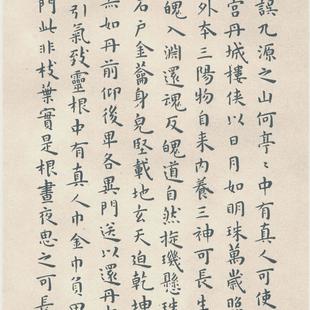 誤九源之山何亭〻中有真人可使
宫丹城樓俠以日月如明珠萬歲照
外本三陽物自来内養三神可長生
魄入淵還魂反魄道自然掟璣懸珠
石户金籥身皃堅載地玄天迫乾坤
無如丹前仰後卑各異門送以還丹
引氣致靈根中有真人巾金巾負甲
門此非枝葉實是根晝夜思之可長